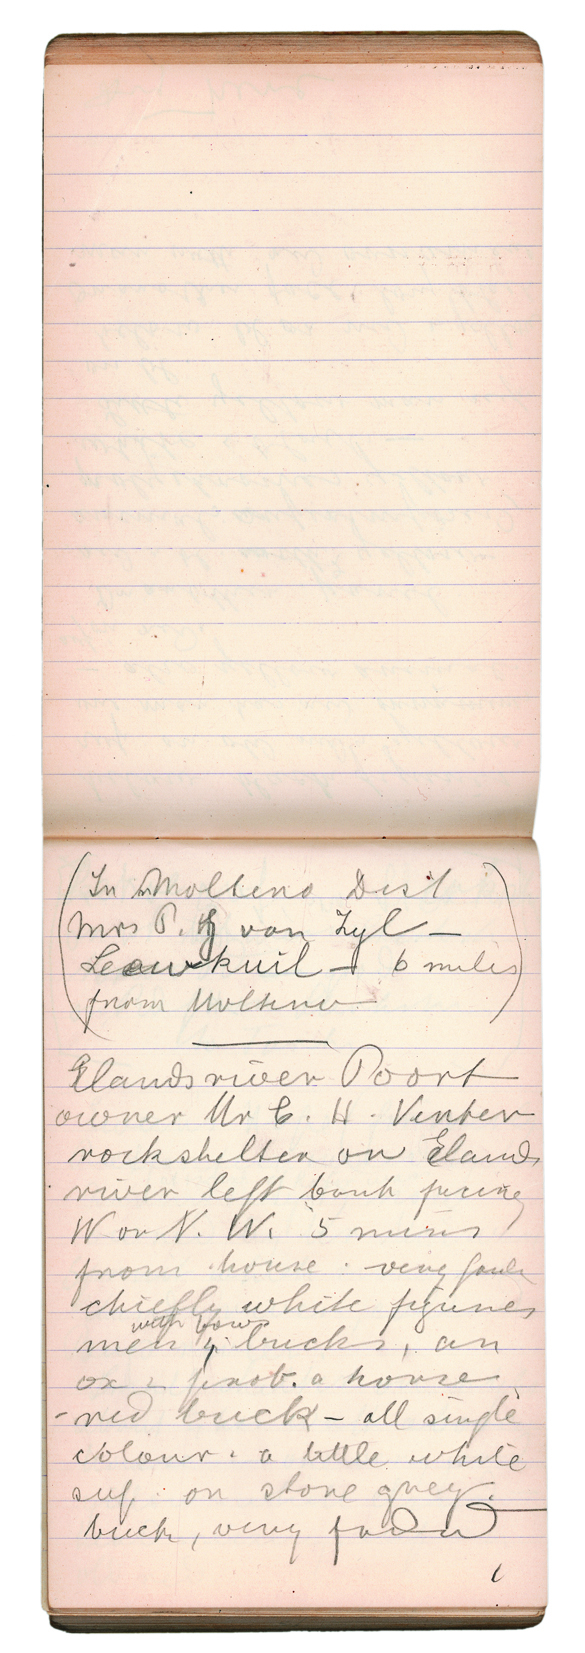 (In Molteno Dist
Mrs P. H van Zyl —
Leeuwkuil — 6 miles
from Molteno)
Elandsriver Poort
owner Mr C. H. Venter
rockshelter on Elands
river left bank facing
W or N. W. 5 mins
from house. very faded
chiefly white figures
men with bows, bucks, an
ox & prob. a horse
- red buck - all single
colour. a little white
sup. on stone grey.
buck, very faded